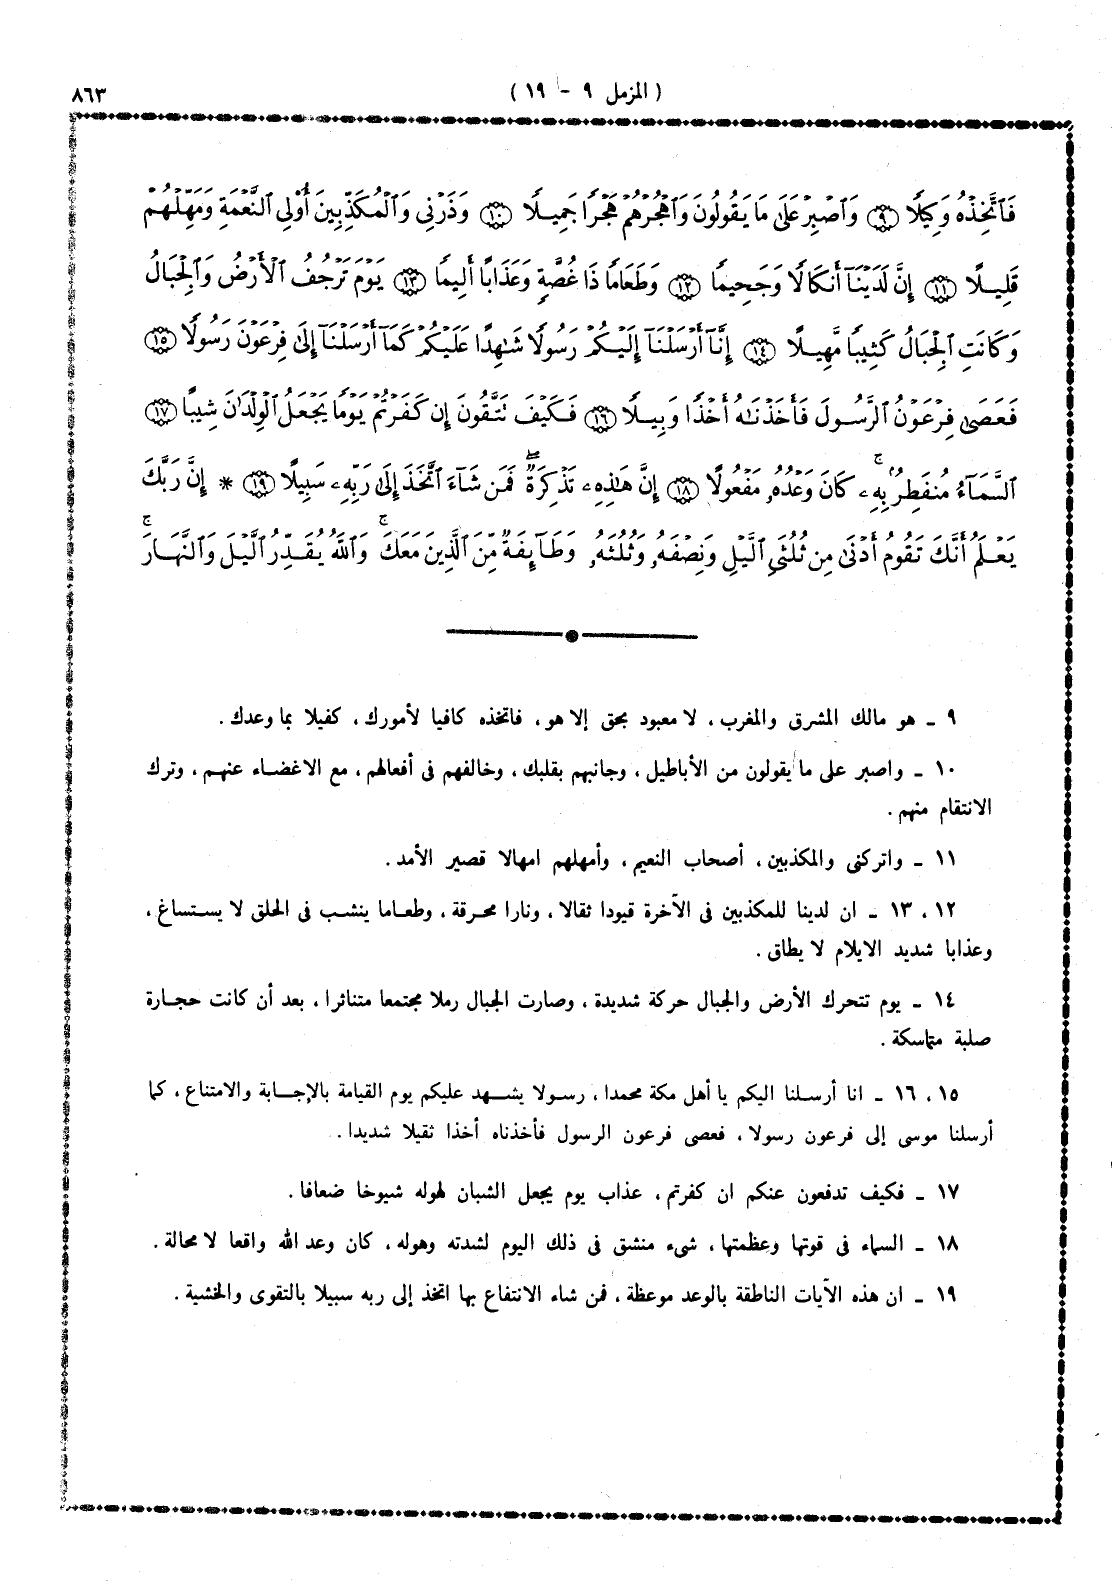 ( المزمل ٩ - ١٩ )
٨٦٣
فَٱتَّخِذْهُ وَكِيلًا ۝٩ وَٱصْبِرْ عَلَىٰ مَا يَقُولُونَ وَٱهْجُرْهُمْ هَجْرًا جَمِيلًا ۝١٠ وَذَرْنِي وَٱلْمُكَذِّبِينَ أُوْلِي ٱلنَّعْمَةِ وَمَهِّلْهُمْ
قَلِيلًا ۝١١ إِنَّ لَدَيْنَآ أَنكَالًا وَجَحِيمًا ۝١٢ وَطَعَامًا ذَا غُصَّةٍ وَعَذَابًا أَلِيمًا ۝١٣ يَوْمَ تَرْجُفُ ٱلْأَرْضُ وَٱلْجِبَالُ
وَكَانَتِ ٱلْجِبَالُ كَثِيبًا مَّهِيلًا ۝١٤ إِنَّآ أَرْسَلْنَآ إِلَيْكُمْ رَسُولًا شَٰهِدًا عَلَيْكُمْ كَمَآ أَرْسَلْنَآ إِلَىٰ فِرْعَوْنَ رَسُولًا ۝١٥
فَعَصَىٰ فِرْعَوْنُ ٱلرَّسُولَ فَأَخَذْنَٰهُ أَخْذًا وَبِيلًا ۝١٦ فَكَيْفَ تَتَّقُونَ إِن كَفَرْتُمْ يَوْمًا يَجْعَلُ ٱلْوِلْدَٰنَ شِيبًا ۝١٧
ٱلسَّمَآءُ مُنفَطِرٌۢ بِهِۦۚ كَانَ وَعْدُهُۥ مَفْعُولًا ۝١٨ إِنَّ هَٰذِهِۦ تَذْكِرَةٌۖ فَمَن شَآءَ ٱتَّخَذَ إِلَىٰ رَبِّهِۦ سَبِيلًا ۝١٩ * إِنَّ رَبَّكَ
يَعْلَمُ أَنَّكَ تَقُومُ أَدْنَىٰ مِن ثُلُثَيِ ٱلَّيْلِ وَنِصْفَهُۥ وَثُلُثَهُۥ وَطَآئِفَةٌ مِّنَ ٱلَّذِينَ مَعَكَۚ وَٱللَّهُ يُقَدِّرُ ٱلَّيْلَ وَٱلنَّهَارَۚ
٩ ـ هو مالك المشرق والمغرب ، لا معبود بحق إلا هو ، فاتخذه كافيا لأمورك ، كفيلا بما وعدك .
١٠ ـ واصبر على ما يقولون من الأباطيل ، وجانبهم بقلبك ، وخالفهم فى أفعالهم ، مع الاغضاء عنهم ، وترك
الانتقام منهم .
١١ ـ واتركنى والمكذبين ، أصحاب النعيم ، وأمهلهم امهالا قصير الأمد .
١٢ ، ١٣ ـ ان لدينا للمكذبين فى الآخرة قيودا ثقالا ، ونارا محرقة ، وطعاما ينشب فى الحلق لا يستساغ ،
وعذابا شديد الايلام لا يطاق .
١٤ ـ يوم تتحرك الأرض والجبال حركة شديدة ، وصارت الجبال رملا مجتمعا متناثرا ، بعد أن كانت حجارة
صلبة متماسكة .
١٥ ، ١٦ ـ انا أرسلنا اليكم يا أهل مكة محمدا ، رسولا يشهد عليكم يوم القيامة بالإجابة والامتناع ، كما
أرسلنا موسى إلى فرعون رسولا ، فعصى فرعون الرسول فأخذناه أخذا ثقيلا شديدا .
١٧ ـ فكيف تدفعون عنكم ان كفرتم ، عذاب يوم يجعل الشبان لهوله شيوخا ضعافا .
١٨ ـ السماء فى قوتها وعظمتها ، شىء منشق فى ذلك اليوم لشدته وهوله ، كان وعد الله واقعا لا محالة .
١٩ ـ ان هذه الآيات الناطقة بالوعد موعظة ، فمن شاء الانتفاع بها اتخذ إلى ربه سبيلا بالتقوى والخشية .